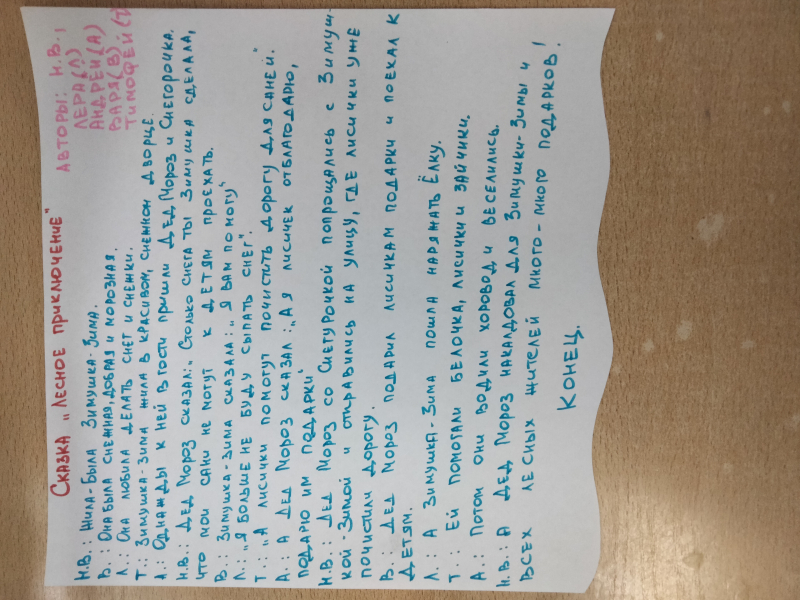 Сказка „Лесное приключение"
Авторы: Н.В.,
Лера(Л)
Андрей(А)
Варя(В)
Тимофей(Т)
Н.В.: Жила-была Зимушка-Зима.
В.: Она была снежная, добрая и морозная.
Л.: Она любила делать снег и снежки.
Т.: Зимушка-Зима жила в красивом, снежном дворце.
А.: Однажды к ней в гости пришли Дед Мороз и Снегорочка.
Н.В.: Дед Мороз сказал: „Столько снега ты Зимушка сделала,
что мои сани не могут к детям проехать.
В.: Зимушка-Зима сказала: „Я вам помогу"
Л.: „Я больше не буду сыпать снег".
Т.: „А лисички помогут почистить дорогу для саней."
А.: А Дед Мороз сказал: „А я лисичек отблагодарю,
подарю им подарки"
Н.В.: Дед Мороз со Снегурочкой попрощались с Зимуш-
кой-Зимой и отправились на улицу, где лисички уже
почистили дорогу.
В.: Дед Мороз подарил лисичкам подарки и поехал к
детям.
Л.: А Зимушка-Зима пошла наряжать Ёлку.
Т.: Ей помогали белочка, лисички и зайчики.
А.: Потом они водили хоровод и веселились.
Н.В.: А Дед Мороз накалдовал для Зимушки-Зимы и
всех лесных жителей много-много подарков!
Конец.